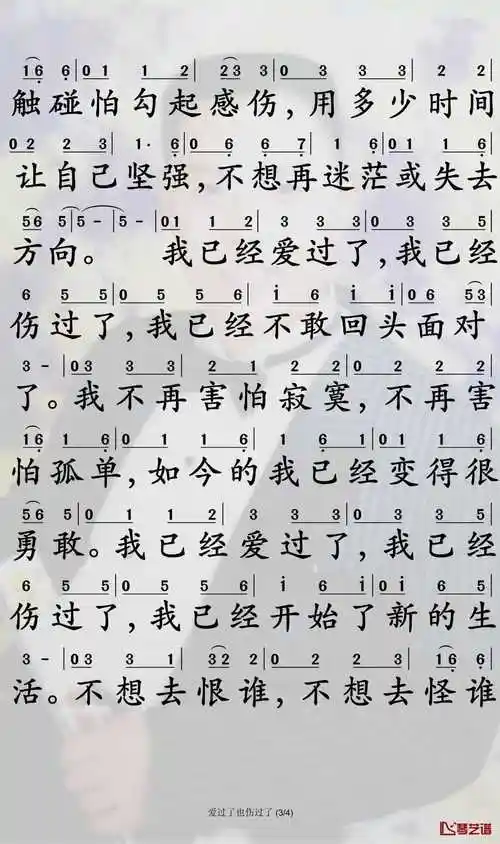 1 6 6 | 0 1 1 2 | 2 3 3 | 0 3 3 3 | 2 2
触碰怕勾起感伤,用多少时间
0 2 2 3 | 1· 6 | 0 6 6 7 | 1 1 1 6
让自己坚强,不想再迷茫或失去
5 6 5 | 5 – | 5 – | 0 1 1 2 | 3 3 3 | 0 3 3 5
方向。 我已经爱过了,我已经
6 5 5 | 0 5 5 6 | i 6 i | 0 6 5 3
伤过了,我已经不敢回头面对
3 – | 0 3 3 3 | 2 1 2 2 | 0 2 2 2
了。我不再害怕寂寞,不再害
1 6 1 6 | 0 1 1 6 | 1 6 1 | 0 1 1 6
怕孤单,如今的我已经变得很
5 6 5 | 0 1 1 2 | 3 3 3 | 0 3 3 5
勇敢。我已经爱过了,我已经
6 5 5 | 0 5 5 6 | i 6 i | 0 i 6 5
伤过了,我已经开始了新的生
3 – | 0 3 3 1 | 3 2 2 | 0 2 2 2 | 1 6
活。不想去恨谁,不想去怪谁
爱过了也伤过了 (3/4)
琴艺谱